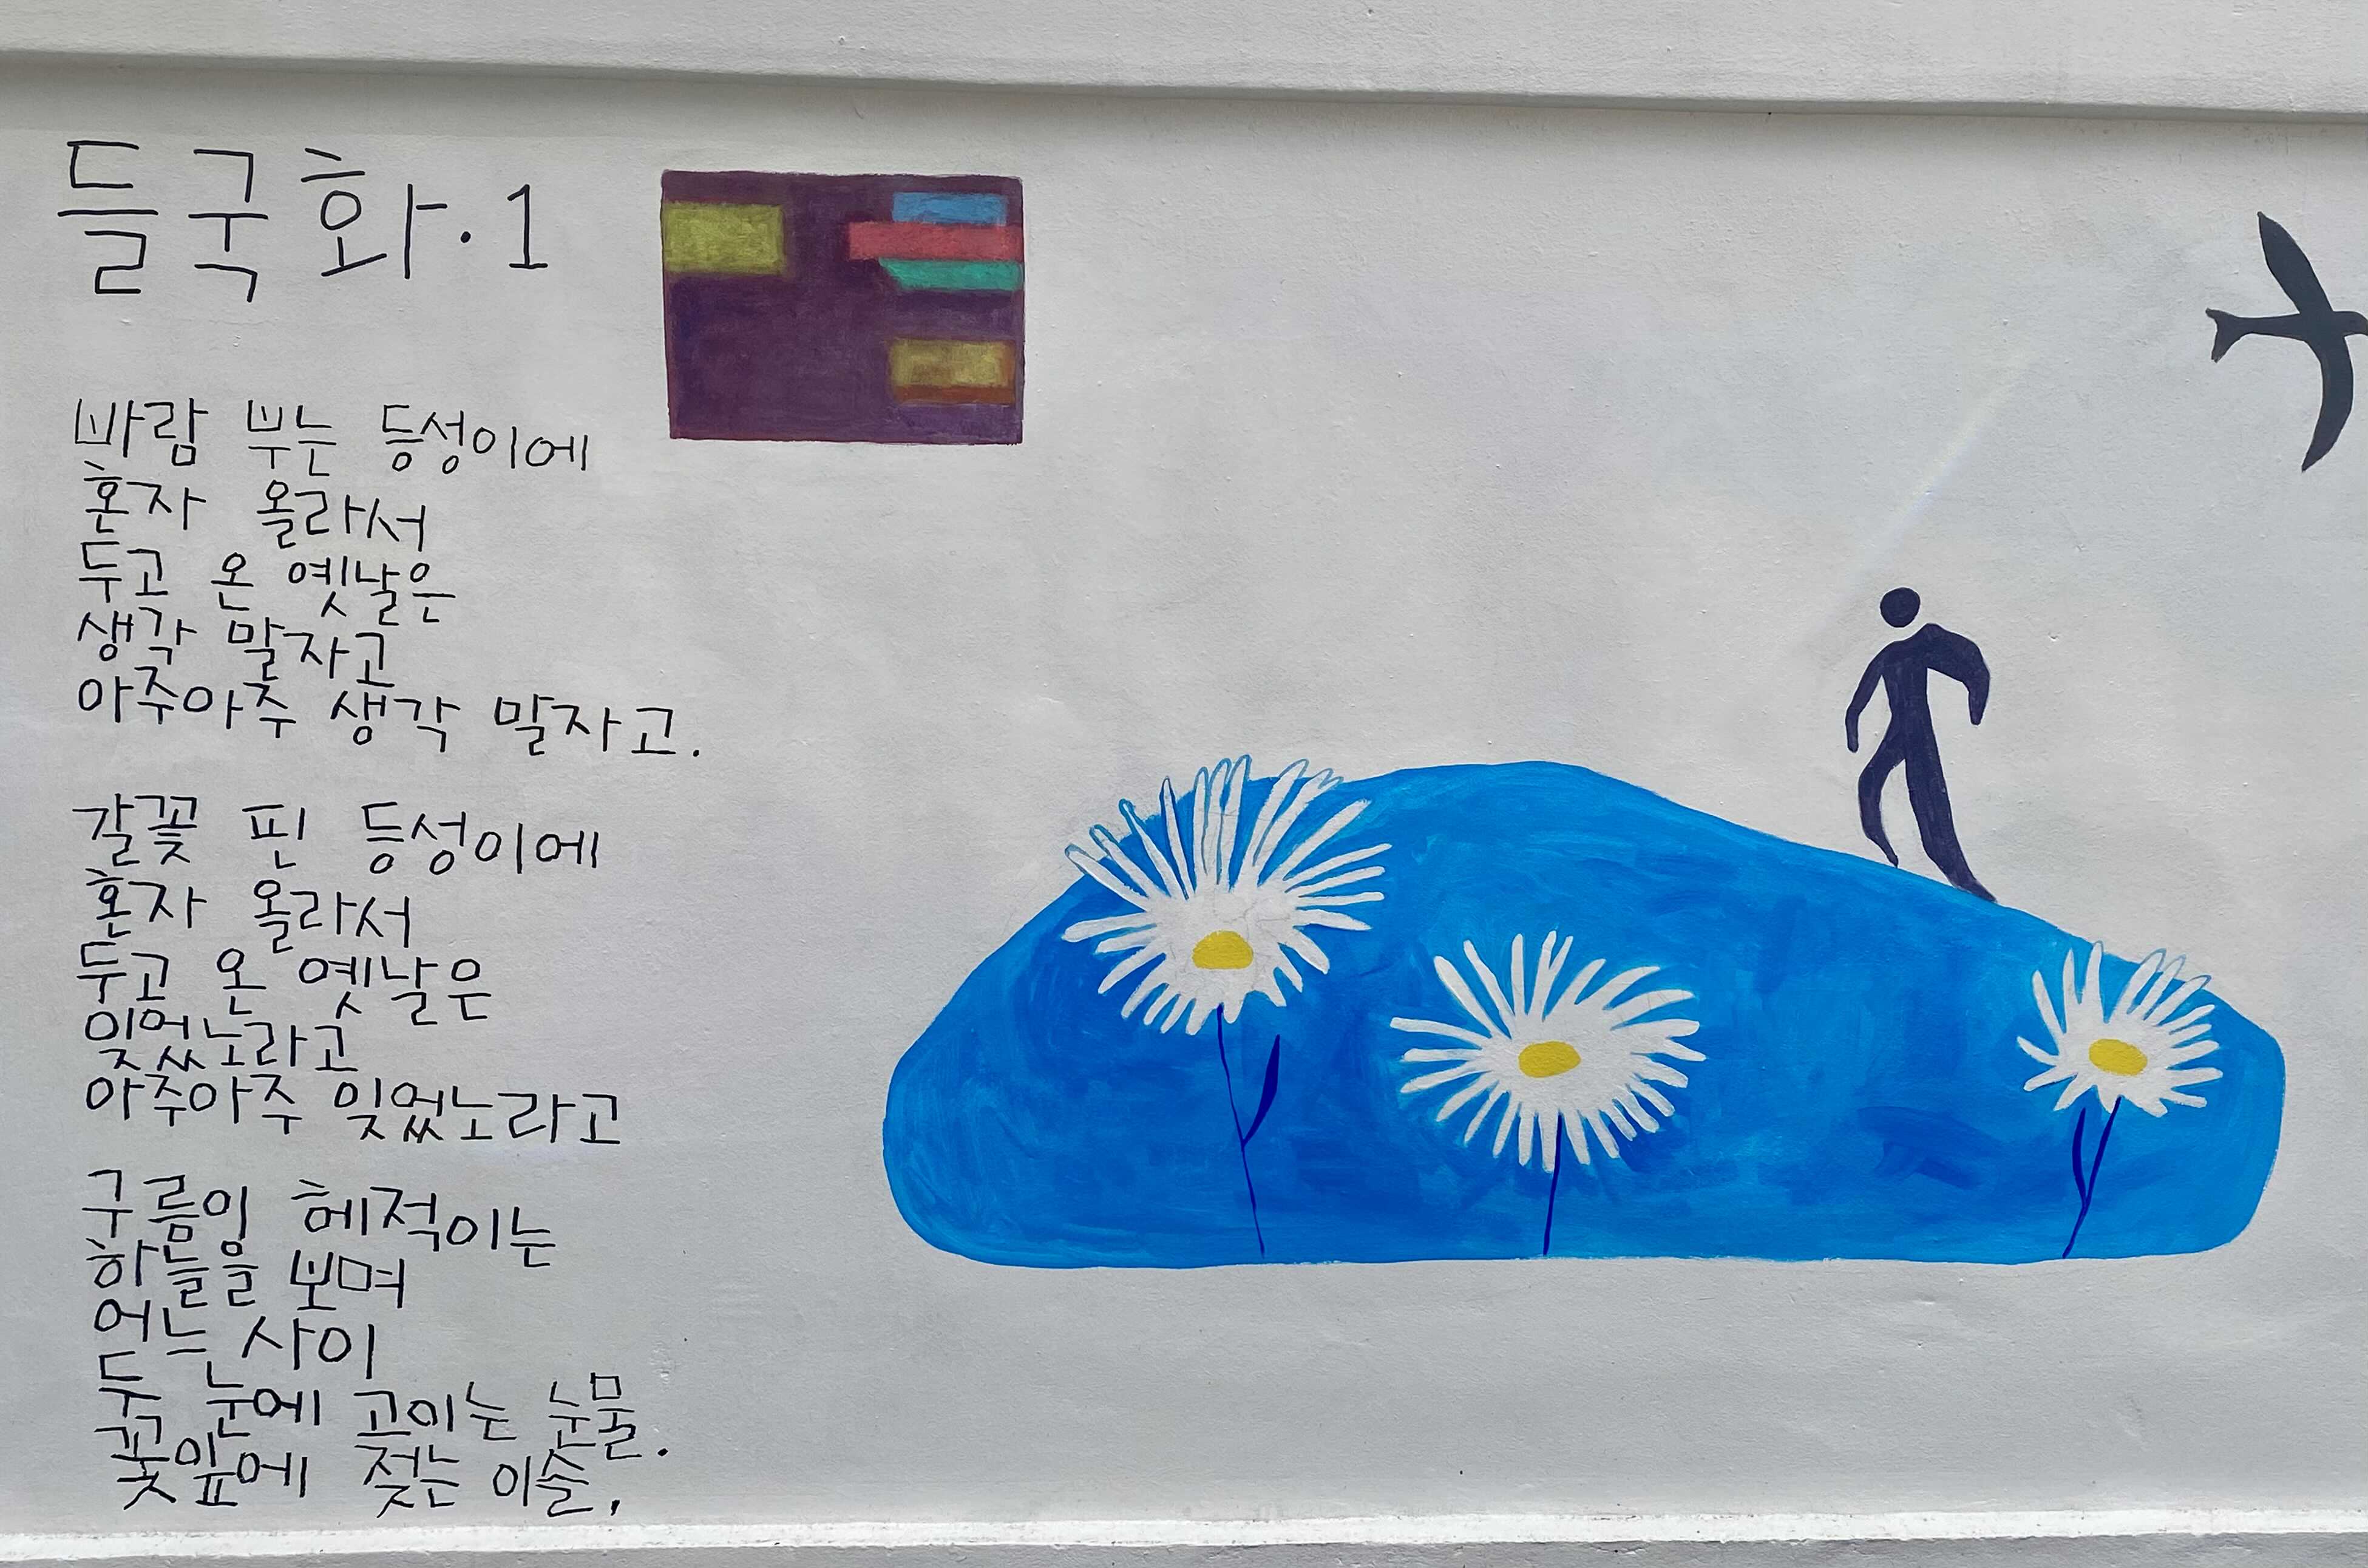 들국화·1
바람 부는 등성이에
혼자 올라서
두고 온 옛날은
생각 말자고
아주아주 생각 말자고.
갈꽃 핀 등성이에
혼자 올라서
두고 온 옛날은
잊었노라고
아주아주 잊었노라고
구름이 헤적이는
하늘을 보며
어느 사이
두 눈에 고이는 눈물.
꽃잎에 젖는 이슬,